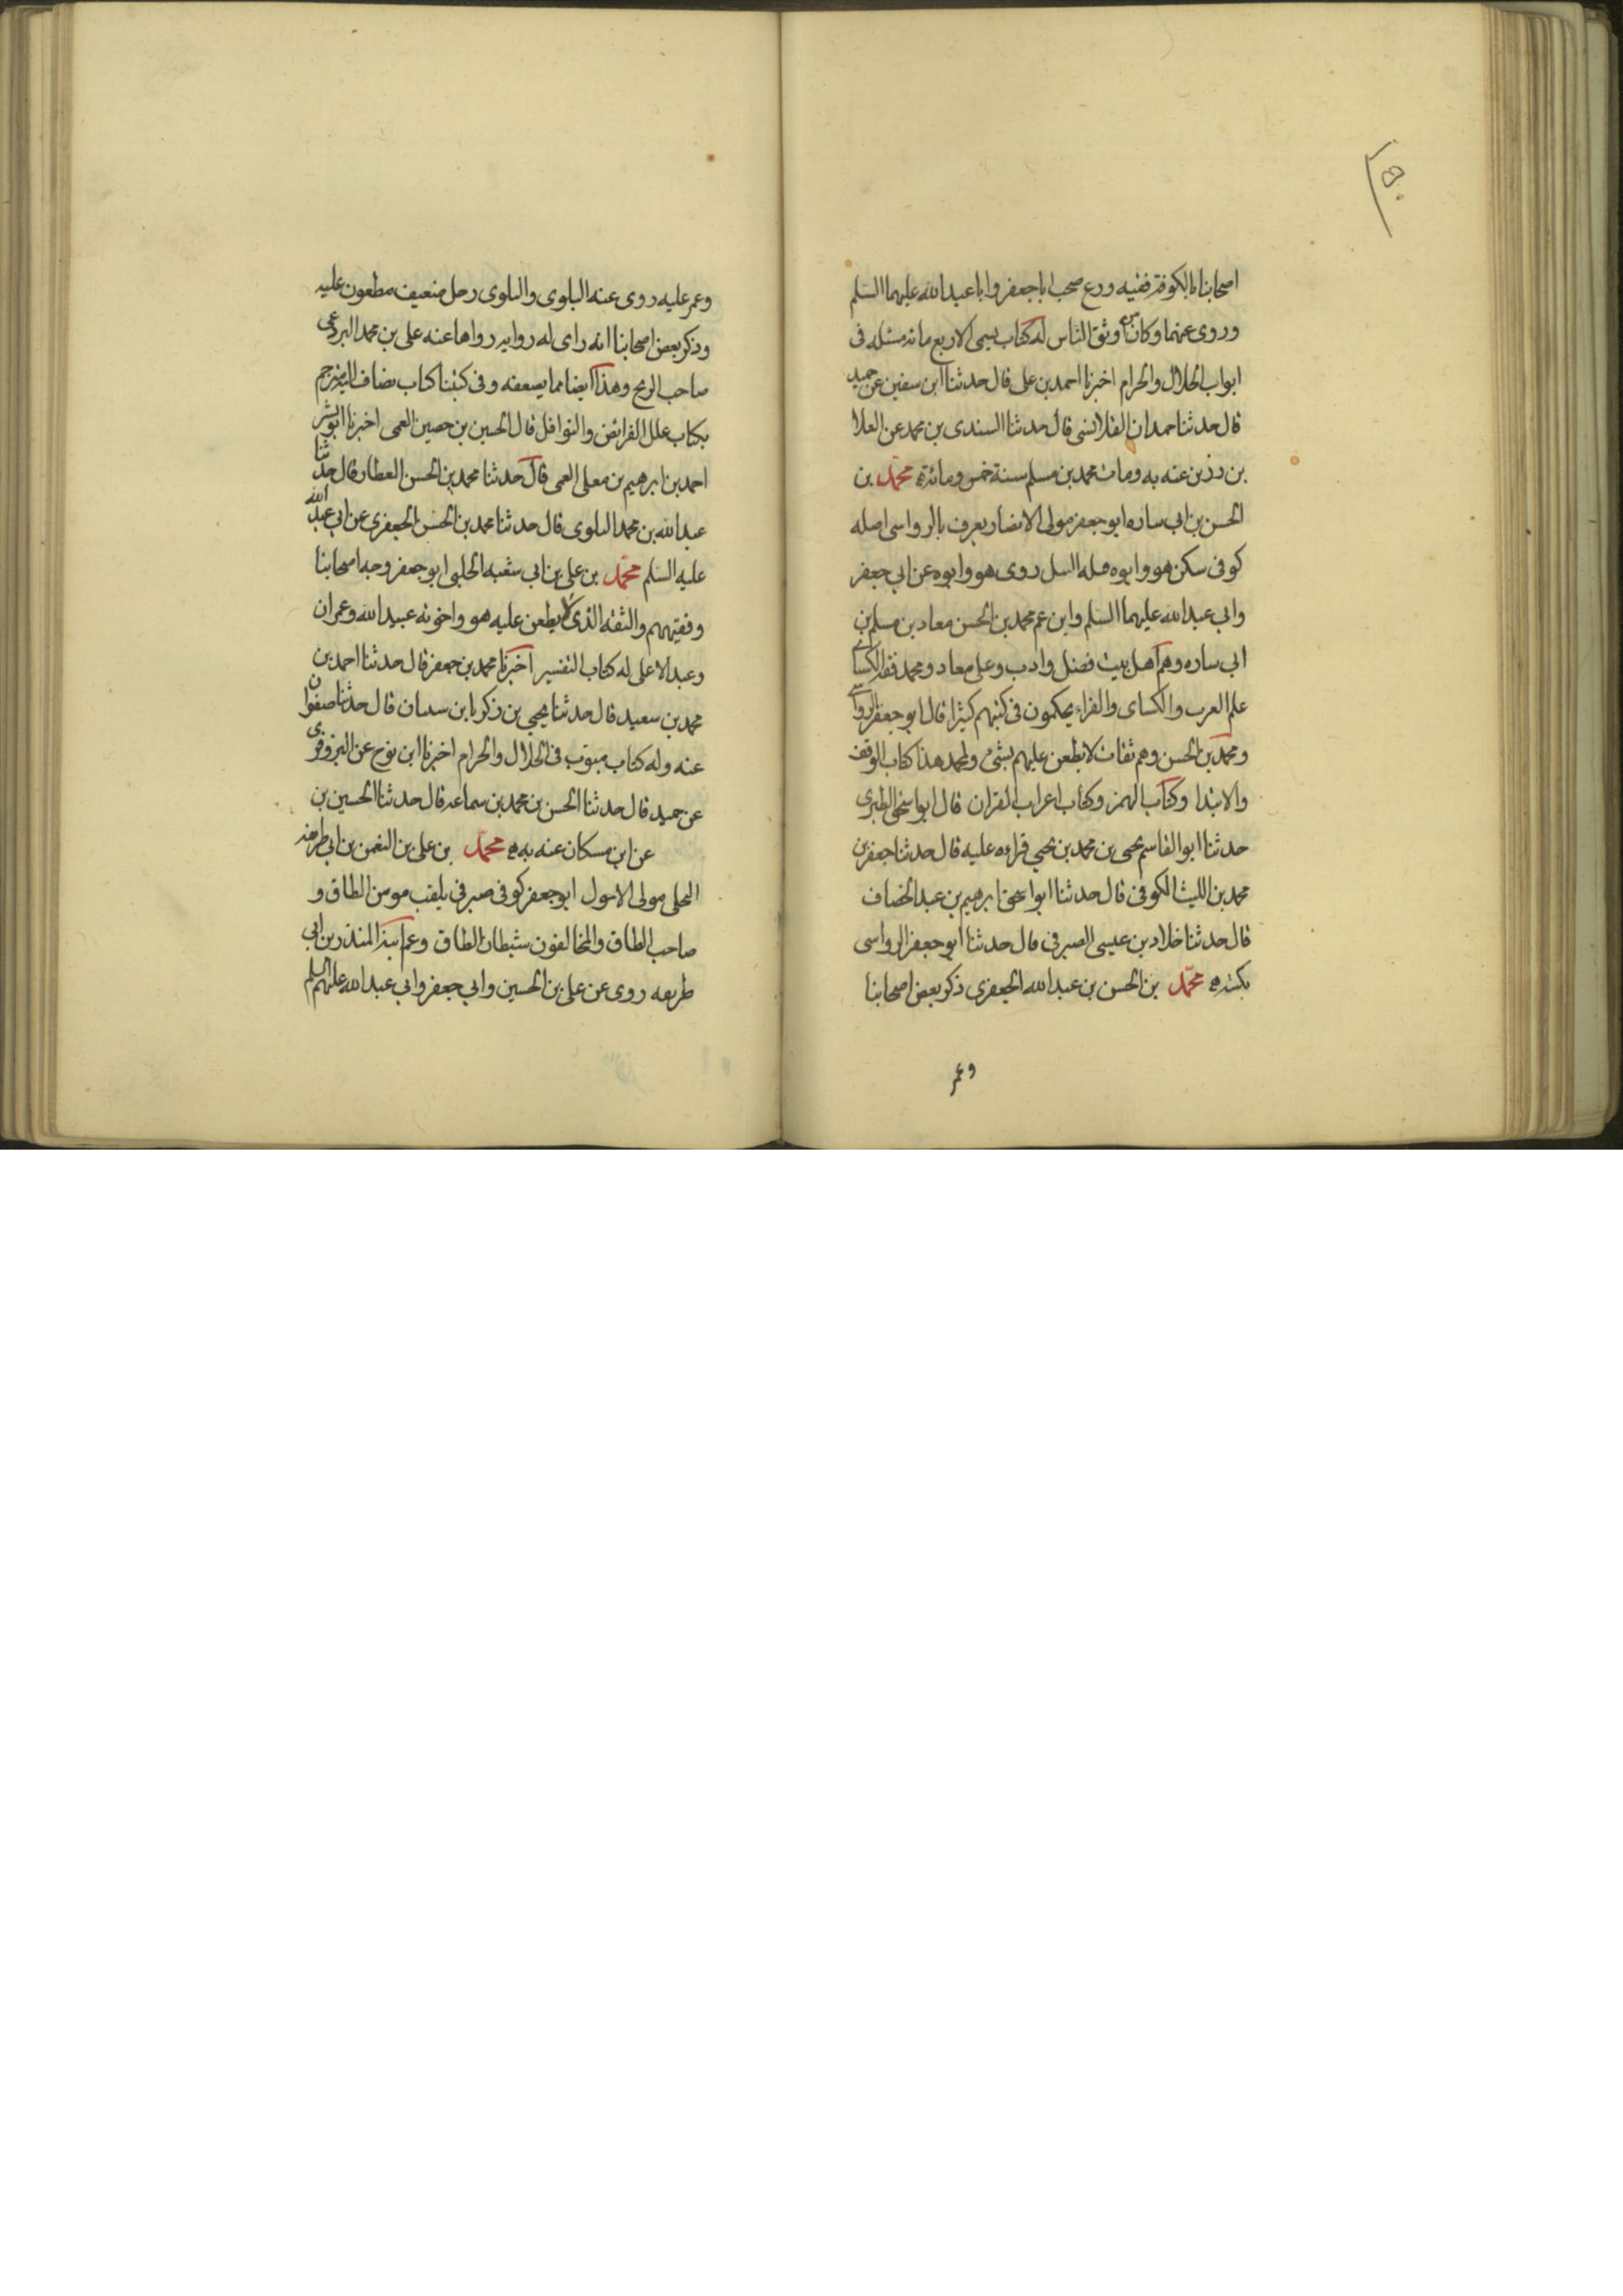 اصحابنا بالكوفة فقيه ورع صحب اباجعفر وابا عبدالله عليهما السلم
وروى عنهما وكان من اوثق الناس له كتاب يسمى الاربع مائه مسئله فى
ابواب الحلال والحرام اخبرنا احمد بن على قال حدثنا ابن سفين عن حميد
قال حدثنا حمدان القلانسى قال حدثنا السندى بن محمد عن العلا
بن رزين عنه به ومات محمد بن مسلم سنة خمس ومائة محمد بن
الحسن بن ابى ساره ابو جعفر مولى الانصار يعرف بالرواسى اصله
كوفى سكن هو وابوه قبله النيل روى هو وابوه عن ابى جعفر
وابى عبدالله عليهما السلم وابن عم محمد بن الحسن معاد بن مسلم بن
ابى ساره وهم اهل بيت فضل وادب وعلى معاد ومحمد فقه الكسائى
علم العرب والكساى والفراء يحكمون فى كتبهم كثيرا قال ابو جعفر الرواسى
ومحمد بن الحسن وهم ثقات لا يطعن عليهم بشئ ولمحمد هذا كتاب الوقف
والابتدا وكتاب الهمز وكتاب اعراب القران قال ابو اسحق الطبرى
حدثنا ابو القاسم يحيى بن محمد بن يحيى قراءه عليه قال حدثنا جعفر بن
محمد بن الليث الكوفى قال حدثنا ابو اسحق ابرهيم بن عبد الخصاف
قال حدثنا خلاد بن عيسى الصيرفى قال حدثنا ابو جعفر الرواسى
بكتبه محمد بن الحسن بن عبد الله الجعفرى ذكر بعض اصحابنا
وعمر
وعمر عليه روى عنه البلوى والبلوى رجل ضعيف مطعون عليه
وذكر بعض اصحابنا انه راى له روايه رواها عنه على بن محمد البردعى
صاحب الزنج وهذا ايضا مما يضعفه وفى كتبنا كتاب يضاف اليه مترجم
بكتاب علل الفرائض والنوافل قال الحسين بن حصين العمى اخبرنا ابو بشر
احمد بن ابرهيم بن معلى العمى قال حدثنا محمد بن الحسن العطار قال حدثنا
عبدالله بن محمد البلوى قال حدثنا محمد بن الحسن الجعفرى عن ابى عبد الله
عليه السلم محمد بن على بن ابى شعبه الحلبى ابو جعفر وجه اصحابنا
وفقيههم والثقه الذى لا يطعن عليه هو واخوته عبيد الله وعمران
وعبد الاعلى له كتاب التفسير اخبرنا محمد بن جعفر قال حدثنا احمد بن
محمد بن سعيد قال حدثنا يحيى بن زكريا بن سىىان قال حدثنا صفوان
عنه وله كتاب مبوب فى الحلال والحرام اخبرنا ابن نوح عن البزوفرى
عن حميد قال حدثنا الحسن بن محمد بن سماعه قال حدثنا الحسين بن
عن ابن مسكان عنه به محمد بن على بن النعمن بن ابى طريفه
البجلى مولى الاحول ابو جعفر كوفى صيرفى يلقب مومن الطاق و
صاحب الطاق والمخالفون شيطان الطاق وعم ابيه المنذر بن ابى
طريفه روى عن على بن الحسين وابى جعفر وابى عبد الله عليهم السلم